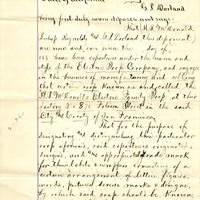 State of California
G. S. Dorland
being first duly sworn deposes and says:
That H. A. McDonald
Bishop Reynolds and G. S. Dorland this deponent
are now and ever since the day of
187 have been copartners under the name and
style of the Electric Soap Company, and engaged
in the business of manufacturing and selling
that certain soap known as and called the
H. A. McDonald's Electric Family Soap at their
factory No. Folsom Street in the said
City and County of San Francisco
That for the purpose of
designating and distinguishing this particular
soap aforesaid, said copartners originated,
designed, and appropriated trade mark
for their labels and wrappers consisting of a
certain arrangement of letters, figures,
words, pictured devices marks & designs,
by which said soap should be known